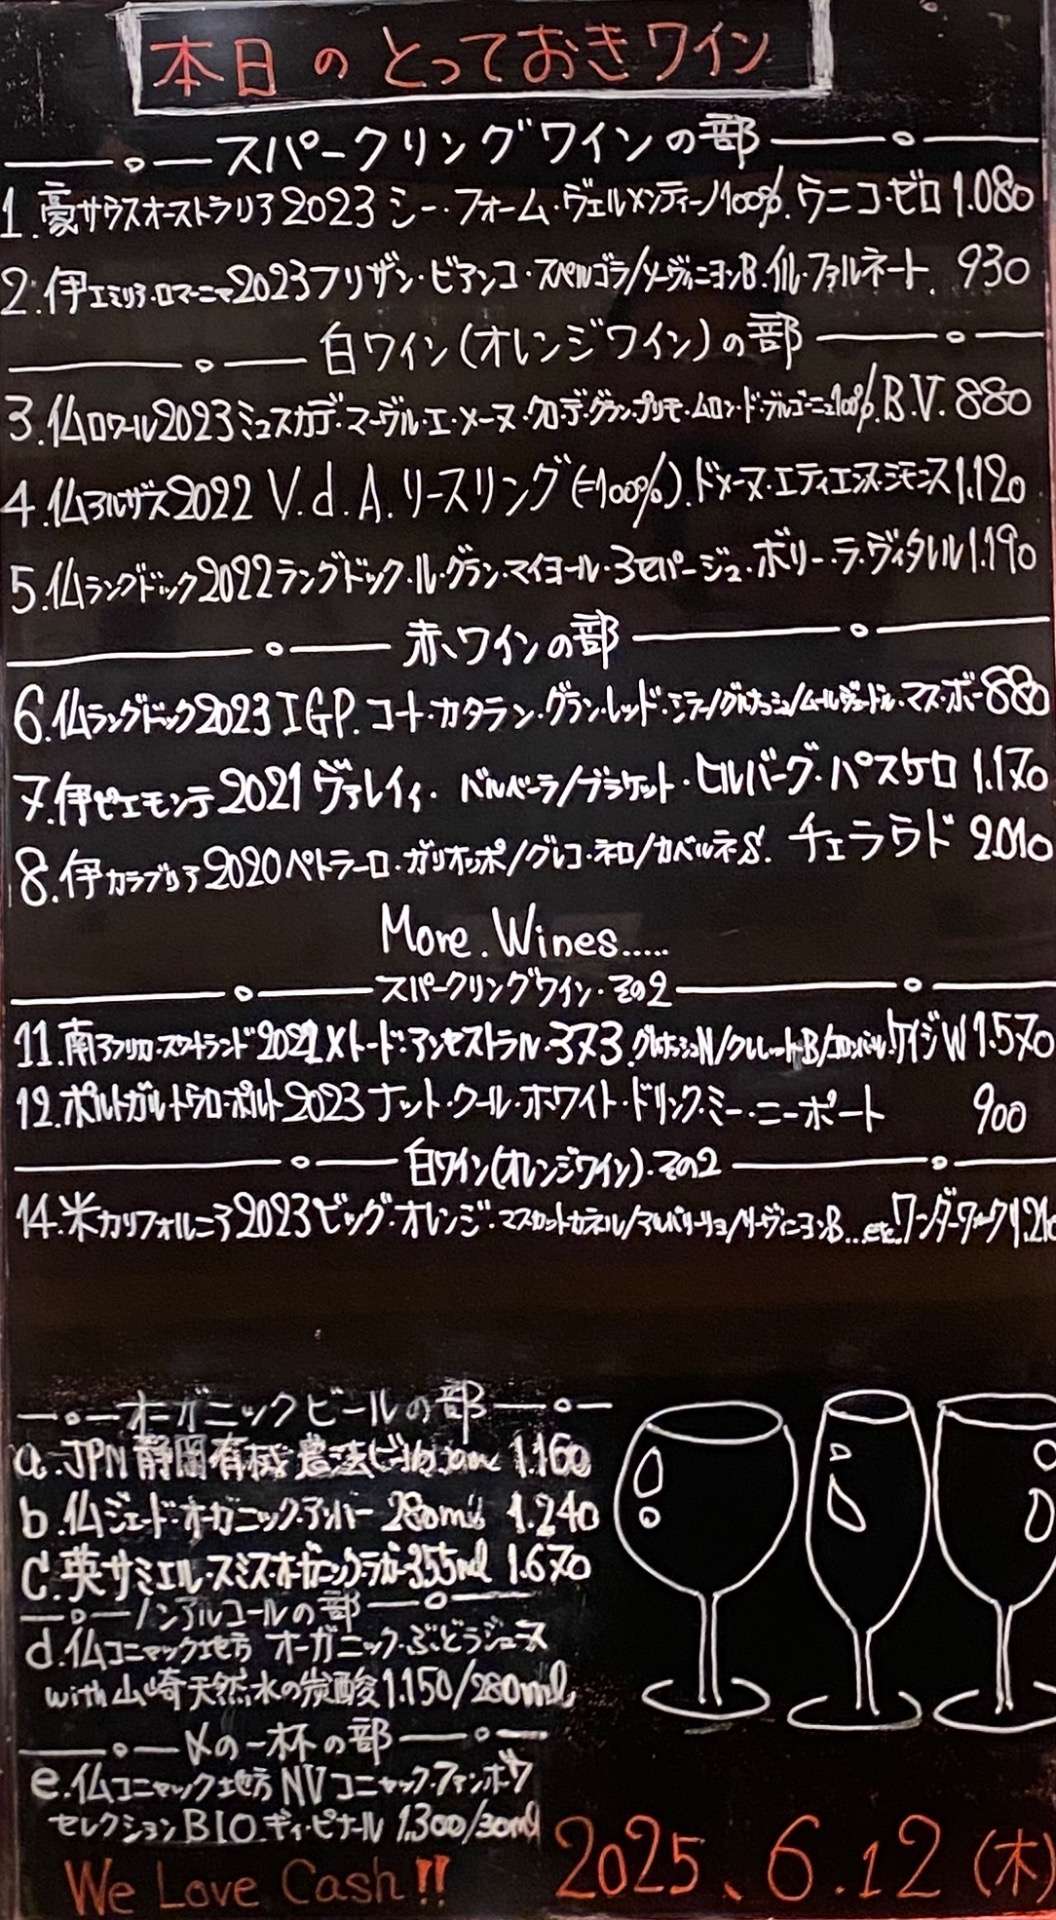 本日のとっておきワイン
スパークリングワインの部
1.豪サウスオーストラリア2023シー・フォーム・ヴェルメンティーノ100%.ウニコ・ゼロ1.080
2.伊エミリア・ロマーニャ2023フリザン・ビアンコ・スペルゴラ/ソーヴィニヨンB.イル・ファルネート.930
白ワイン(オレンジワイン)の部
3.仏ロワール2023ミュスカデ・セーヴル・エ・メーヌ・クロ・デ・グランプリモ・ムロン・ド・ブルゴーニュ100%.B.V.880
4.仏アルザス2022 V.d.A.リースリング(=100%).ドメーヌ・エティエンヌ・シモニス1.120
5.仏ラングドック2022ラングドック・ル・グラン・マイヨール・3セパージュ・ボリー・ラ・ヴィタレル1.190
赤ワインの部
6.仏ラングドック2023 IGP.コート・カタラン・グラン・レッド・シラー/グルナッシュ/ムールヴェードル・マス・ボー880
7.伊ピエモンテ2021ヴァレイィ.バルベーラ/ブラケット・ヒルバーグ・パスケロ1.170
8.伊カラブリア2020ペトラーロ・ガリオッポ/グレコ・ネロ/カベルネS.チェラウド2.010
More.Wines.....
スパークリングワイン・その2
11.南アフリカ・スワートランド2021メトード・アンセストラル・373.グルナッシュN/クレレットB/コロンバール.ケイジW1.570
12.ポルトガルドウロ・ポルト2023ナット・クール・ホワイト・ドリンク・ミー・ニーポート 900
白ワイン(オレンジワイン)・その2
14.米カリフォルニア2023ビッグ・オレンジ・マスカットカネル/アルバリーリョ/ソーヴィニヨンB...etc.ワンダーワーク1.21
オーガニックビールの部
a.JPN静岡有機農法ビール 1.160
b.仏ジェード・オーガニック・アンバー 280ml 1.240
c.英サミエル・スミス・オーガニック・ラガー355ml 1.670
ノンアルコールの部
d.仏コニャック地方 オーガニック・ぶどうジュース
with山崎天然水の炭酸1.150/280ml
〆の一杯の部
e.仏コニャック地方NVコニャック・ファンボワ
セレクションBIO.ギィ・ピナール 1.300/30ml
We Love Cash!!
2025、6.12(木)